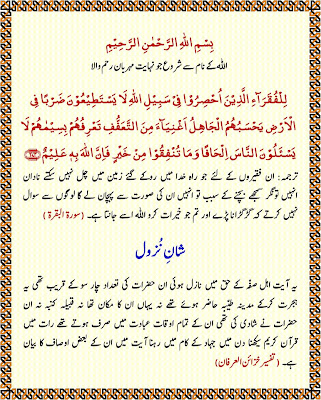 بِسْمِ اللهِ الرَّحْمٰنِ الرَّحِيْمِ
اللہ کے نام سے شروع جو نہایت مہربان رحم والا
لِلْفُقَرَآءِ الَّذِيْنَ اُحْصِرُوْا فِيْ سَبِيْلِ اللهِ لَا يَسْتَطِيْعُوْنَ ضَرْبًا فِي
الْاَرْضِ يَحْسَبُهُمُ الْجَاهِلُ اَغْنِيَآءَ مِنَ التَّعَفُّفِ تَعْرِفُهُمْ بِسِيْمٰهُمْ لَا
يَسْئَلُوْنَ النَّاسَ اِلْحَافًا وَمَا تُنْفِقُوْا مِنْ خَيْرٍ فَاِنَّ اللهَ بِهٖ عَلِيْمٌ ﴿۲۷۳﴾
ترجمہ: ان فقیروں کے لئے جو راہ خدا میں روکے گئے زمین میں چل نہیں سکتے نادان
انہیں تونگر سمجھے بچنے کے سبب تو انہیں ان کی صورت سے پہچان لے گا لوگوں سے سوال
نہیں کرتے کہ گڑگڑانا پڑے اور تم جو خیرات کرو اللہ اسے جانتا ہے۔ (سورۃ البقرۃ)
شانِ نُزول
یہ آیت اہل صفہ کے حق میں نازل ہوئی ان حضرات کی تعداد چار سو کے قریب تھی یہ
ہجرت کرکے مدینہ طیّبہ حاضر ہوئے تھے نہ یہاں ان کا مکان تھا نہ قبیلہ کنبہ نہ ان
حضرات نے شادی کی تھی ان کے تمام اوقات عبادت میں صرف ہوتے تھے رات میں
قرآن کریم سیکھنا دن میں جہاد کے کام میں رہنا آیت میں ان کے بعض اوصاف کا بیان
ہے۔ (تفسیر خزائن العرفان)